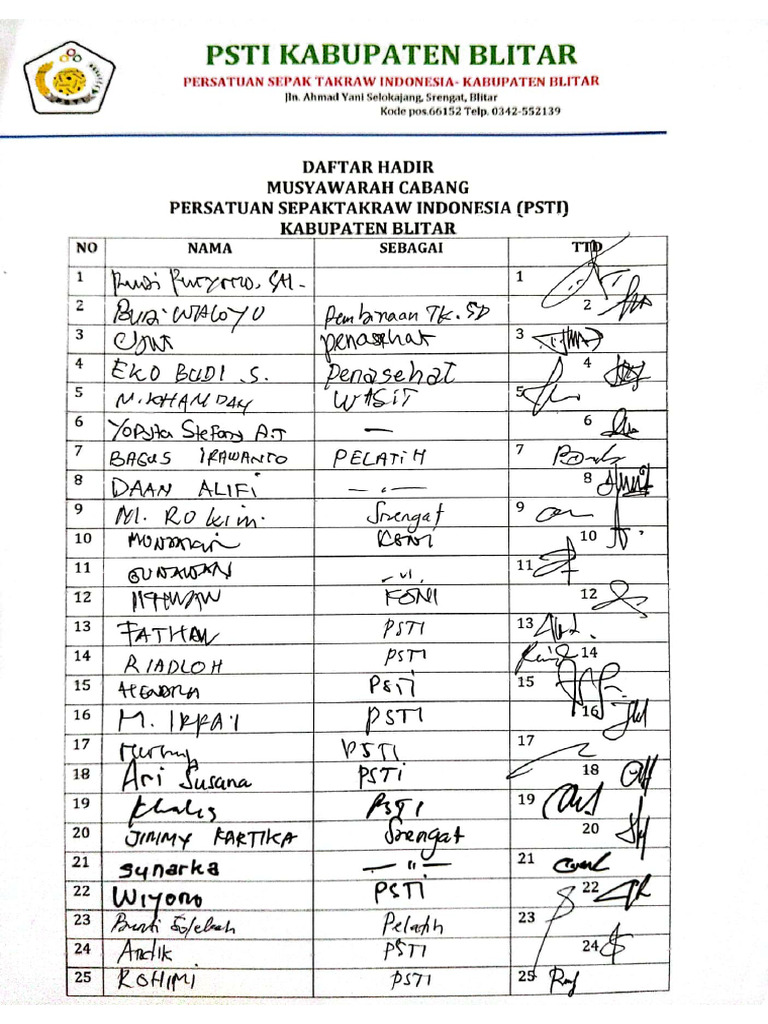 PSTI KABUPATEN BLITAR
PERSATUAN SEPAK TAKRAW INDONESIA- KABUPATEN BLITAR
Jln. Ahmad Yani Selokajang, Srengat, Blitar
Kode pos.66152 Telp. 0342-552139
DAFTAR HADIR
MUSYAWARAH CABANG
PERSATUAN SEPAKTAKRAW INDONESIA (PSTI)
KABUPATEN BLITAR
NO NAMA SEBAGAI TTD
1 1
2 BUDI WALOYO Pembinaan TK. SD 2
3 penasehat 3
4 EKO BUDI . S. Penasehat 4
5 M. KHAMDAN WASIT 5
6 Stefany A.T — 6
7 BAGUS IRAWANTO PELATIH 7
8 DAAN ALIFI — " — 8
9 M. Rokim. Srengat 9
10 KONI 10
11 GUNAWAN — " — 11
12 KONI 12
13 FATHAN PSTI 13
14 RIADLOH PSTI 14
15 HENDRA PSTI 15
16 M. PSTI 16
17 PSTI 17
18 Ari Susana PSTI 18
19 Kholis PSTI 19
20 JIMMY KARTIKA Srengat 20
21 sunarka — " — 21
22 Wiyono PSTI 22
23 Pelatih 23
24 Andik PSTI 24
25 ROHIMI PSTI 25